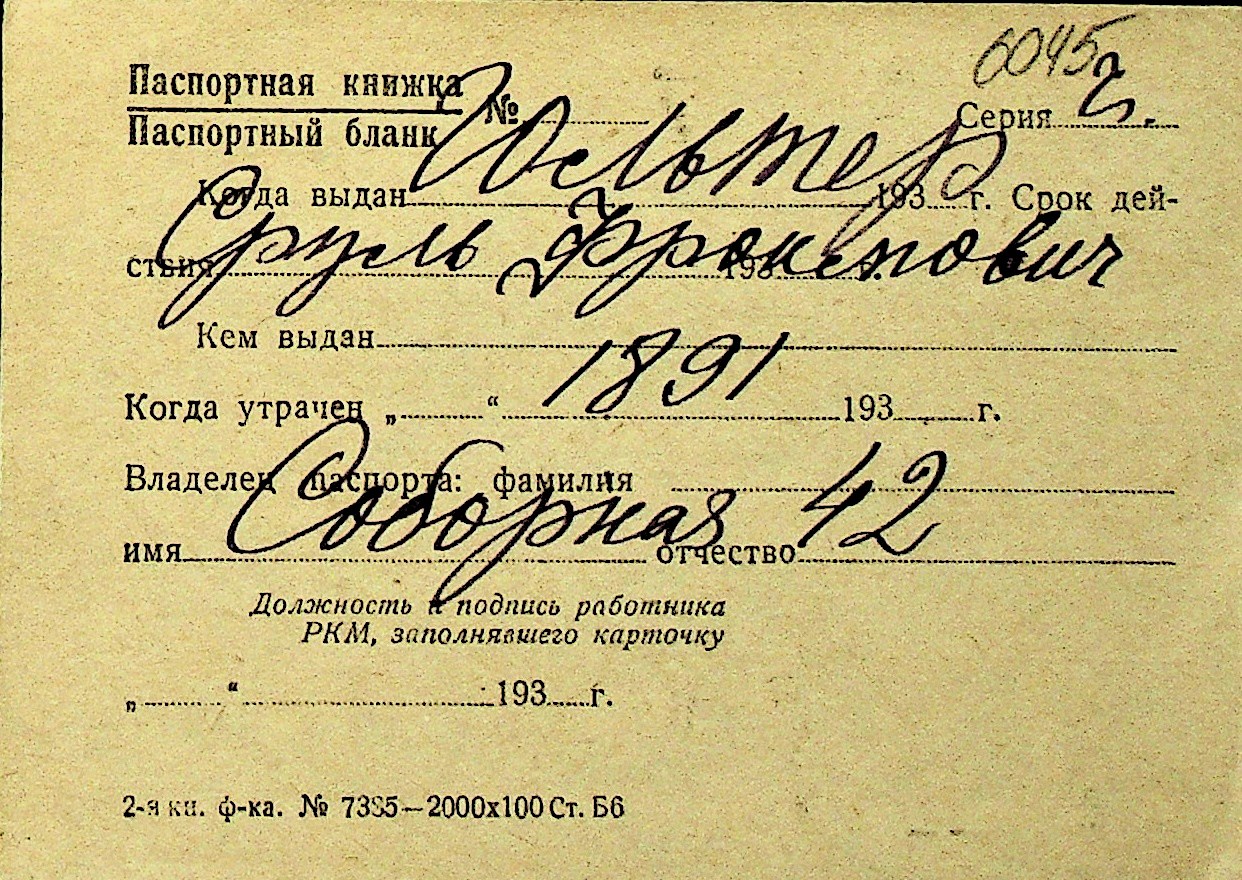 6045
Паспортная книжка
Паспортный бланк
№
Серия
Когда выдан 193 г. Срок дей-
ствия 193 г.
Сруль
Кем выдан
1891
Когда утрачен „ “ 193 г.
Владелец паспорта: фамилия
Соборная 42
имя отчество
Должность и подпись работника
РКМ, заполнявшего карточку
„ “ 193 г.
2-я кн. ф-ка. № 7385—2000х100 Ст. Б6